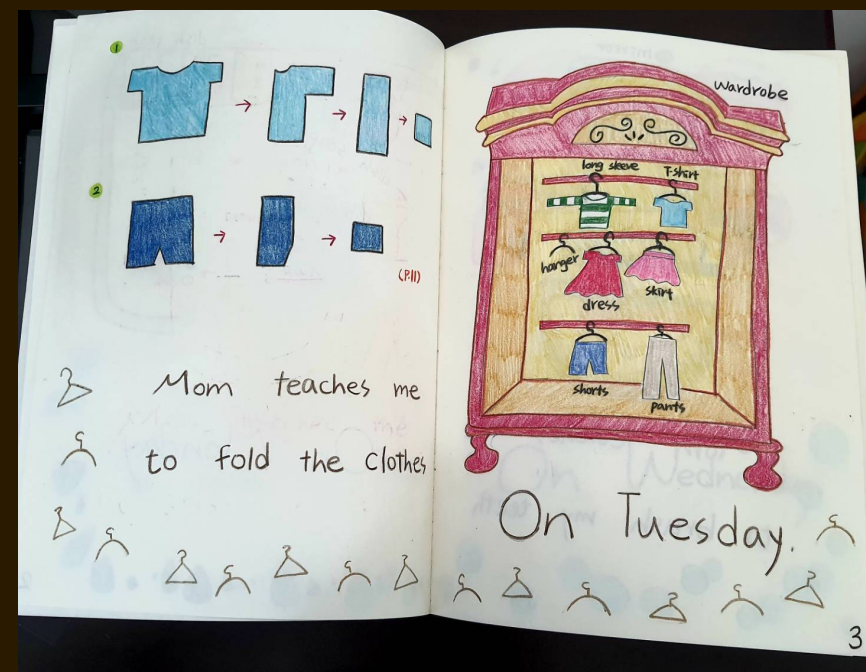 1
2
(P.11)
Mom teaches me
to fold the clothes
wardrobe
long sleeve T-shirt
hanger
dress
skirt
shorts
pants
On Tuesday.
3